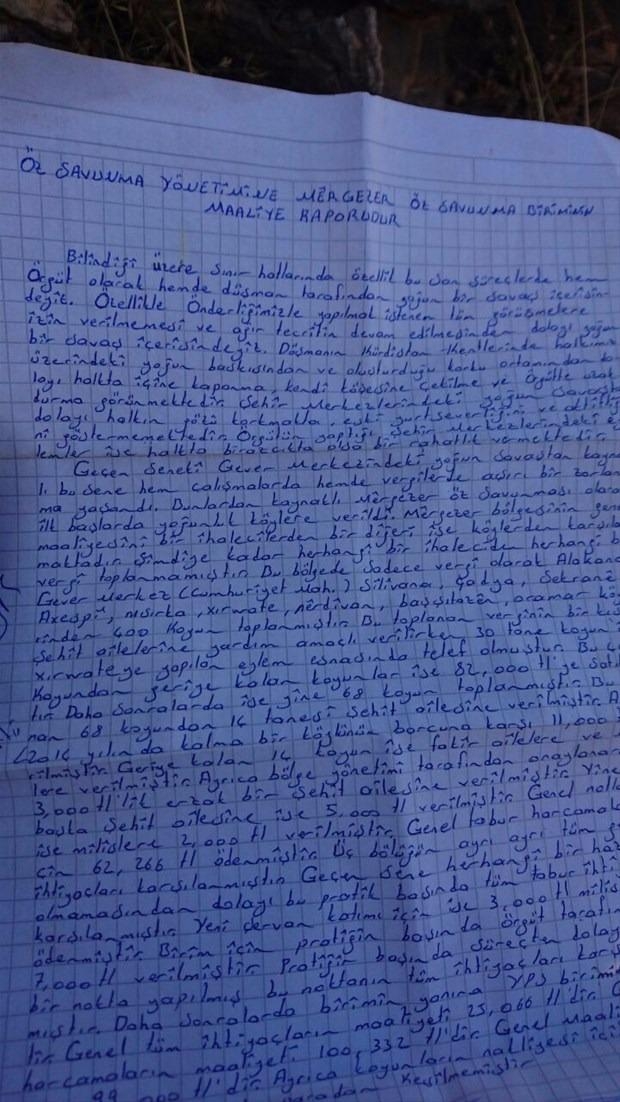 ÖZ SAVUNMA YÖNETİMİNE MÊRGEZER ÖZ SAVUNMA BİRİMİNİN
MAALİYE RAPORUDUR
Bilindiği üzere sınır hatlarında özellik bu son süreçlerde hem
Örgüt olarak hemde düşman tarafından yoğun bir savaş içerisin-
deyiz. Özellikle Önderliğimizle yapılmak istenen tüm görüşmelere
izin verilmemesi ve ağır tecritin devam edilmesinden dolayı yoğun
bir savaş içerisindeyiz. Düşmanın Kürdistan Kentlerinde halkımız
üzerindeki yoğun baskısından ve oluşturduğu korku ortamından do
layı halkta içine kapanma, kendi köşesine çekilme ve Örgütte uzak
durma görünmektedir. Şehir Merkezlerindeki yoğun savaştan
dolayı halkın gözü korkmakta, eski yurtseverliğini ve
ni göstermemektedir. Örgütün yaptığı şehir Merkezlerindeki ey
lemler ise halkta birazcıkta olsa bir rahatlık vermektedir.
Geçen seneki Gever Merkezindeki yoğun savaştan kayna
lı bu sene hem çalışmalarda hemde vergilerde aşırı bir zorlan
ma yaşandı. Bunlardan kaynaklı Mêrgezer öz savunması olarak
ilk başlarda yoğunluk köylere verildi. Mêrgezer bölgesinin gene
maaliyesini bir ihalecilerden bir diğeri ise köylerden karşıla
maktadır. Şimdiye kadar herhangi bir ihaleciden herhangi b
vergi toplanmamıştır. Bu bölgede sadece vergi olarak Alakana
Gever Merkez (Cumhuriyet Mah.) Silivana, Sekranê
Axespî, nısırka, xırwate, nêrdivan, oramar kö
rinden 400 Koyun toplanmıştır. Bu toplanan verginin bir kıs
Şehit ailelerine yardım amaçlı verilirken 30 tane koyun
xırwate ye yapılan eylem esnasında telef olmuştur. Bu
koyundan geriye kalan koyunlar ise 82,000 tl'ye satıl
tır. Daha Sonralarda ise yine 68 koyun toplanmıştır. Bu
nan 68 koyundan 14 tanesi Şehit ailesine verilmiştir. A
(2014 yılında kalma bir köylünün borcuna karşı 11,000
rilmiştir. Geriye kalan 14 koyun ise fakir ailelere ve
lere verilmiştir. Ayrıca bölge yönetimi tarafından onaylana
3,000 tl'lik erzak bir Şehit ailesine verilmiştir. Yine
başka Şehit ailesine ise 5,000 tl verilmiştir. Genel
ise milislere 2,000 tl verilmiştir. Genel tabur harcamala
çin 62,266 tl ödenmiştir. Üç bölüğün ayrı ayrı tüm
ihtiyaçları karşılanmıştır. Geçen Sene herhangi bir haz
olmamasından dolayı bu pratik başında tüm tabur ihti
karşılanmıştır. Yeni Şervan katımı için ise 3,000 tl milis
ödenmiştir. Birim için pratiğin başında örgüt tarafın
7,000 tl verilmiştir. Pratiğin başında süreçten dolay
bir nokta yapılmış bu noktanın tüm ihtiyaçları karşı
mıştır. Daha sonralarda birimin yanına YPS birimi
tir. Genel tüm ihtiyaçların maaliyeti 25,066 tl'dir.
harcamaların maaliyeti 100,332 tl'dir. Genel Maali
tl'dir. Ayrıca koyunların nakliyesi içi
Kesilmemiştir